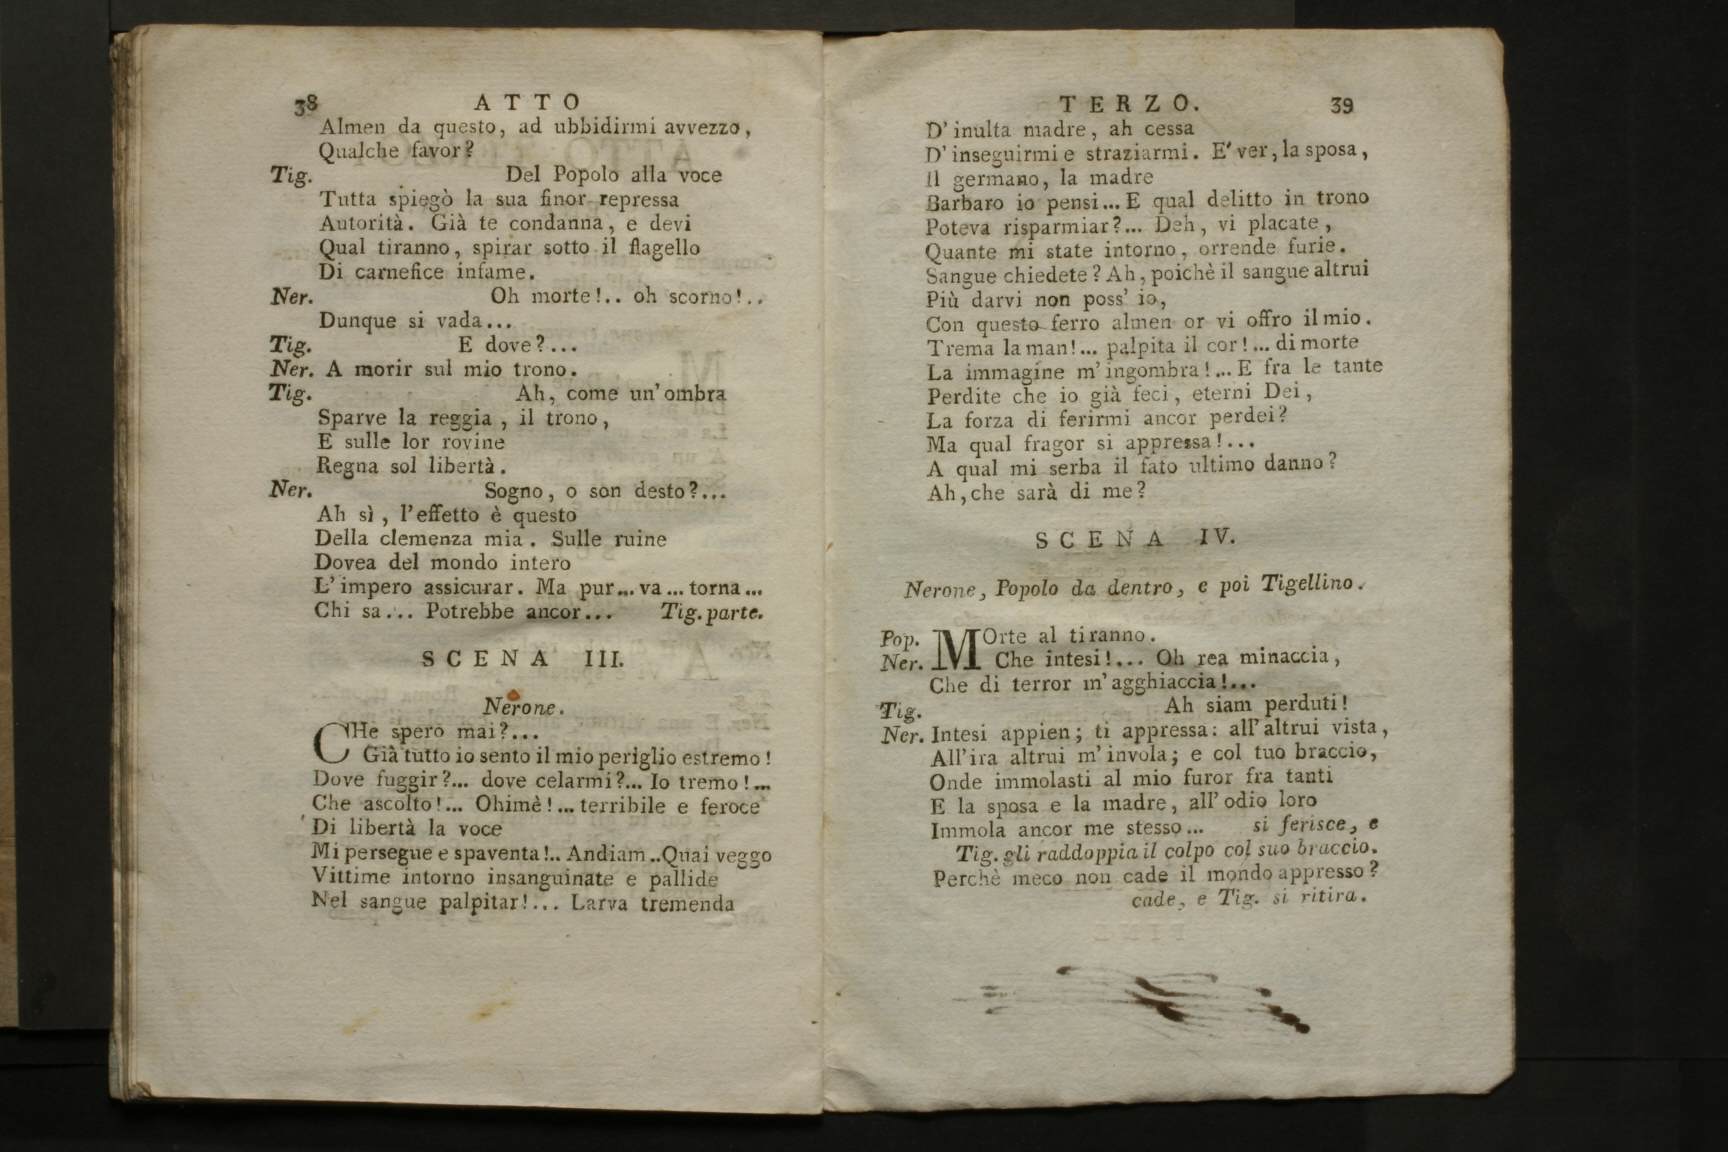 38 ATTO
Almen da questo, ad ubbidirmi avvezzo,
Qualche favor?
Tig. Del Popolo alla voce
Tutta spiegò la sua finor repressa
Autorità. Già te condanna, e devi
Qual tiranno, spirar sotto il flagello
Di carnefice infame.
Ner. Oh morte!.. oh scorno!..
Dunque si vada...
Tig. E dove?...
Ner. A morir sul mio trono.
Tig. Ah, come un' ombra
Sparve la reggia, il trono,
E sulle lor rovine
Regna sol libertà.
Ner. Sogno, o son desto?...
Ah sì, l'effetto è questo
Della clemenza mia. Sulle ruine
Dovea del mondo intero
L'impero assicurar. Ma pur... va... torna...
Chi sa... Potrebbe ancor... Tig. parte.
SCENA III.
Nerone.
CHe spero mai?...
Già tutto io sento il mio periglio estremo!
Dove fuggir?... dove celarmi?... Io tremo!...
Che ascolto!... Ohimè!... terribile e feroce
Di libertà la voce
Mi persegue e spaventa!.. Andiam.. Quai veggo
Vittime intorno insanguinate e pallide
Nel sangue palpitar!... Larva tremenda
TERZO. 39
D' inulta madre, ah cessa
D' inseguirmi e straziarmi. E' ver, la sposa,
Il germano, la madre
Barbaro io pensi... E qual delitto in trono
Poteva risparmiar?... Deh, vi placate,
Quante mi state intorno, orrende furie.
Sangue chiedete? Ah, poichè il sangue altrui
Più darvi non poss' io,
Con questo ferro almen or vi offro il mio.
Trema la man!... palpita il cor!... di morte
La immagine m' ingombra!... E fra le tante
Perdite che io già feci, eterni Dei,
La forza di ferirmi ancor perdei?
Ma qual fragor si appressa!...
A qual mi serba il fato ultimo danno?
Ah, che sarà di me?
SCENA IV.
Nerone, Popolo da dentro, e poi Tigellino.
Pop. MOrte al tiranno.
Ner. Che intesi!... Oh rea minaccia,
Che di terror m' agghiaccia!...
Tig. Ah siam perduti!
Ner. Intesi appien; ti appressa: all' altrui vista,
All' ira altrui m' invola; e col tuo braccio,
Onde immolasti al mio furor fra tanti
E la sposa e la madre, all' odio loro
Immola ancor me stesso... si ferisce, e
Tig. gli raddoppia il colpo col suo braccio.
Perchè meco non cade il mondo appresso?
cade, e Tig. si ritira.